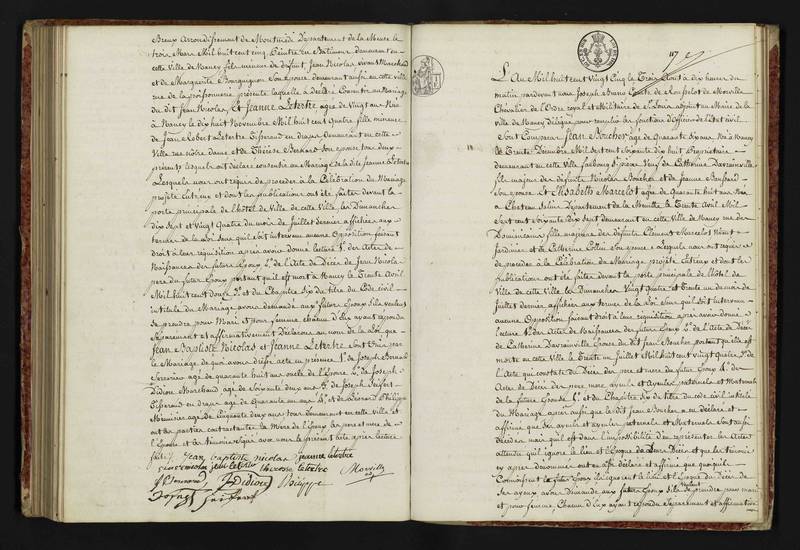 Breux arrondissement de Montmédi Département de la Meuse le
trois Mars Mil huit cent cinq, Peintre en Bâtimens demeurant en
cette Ville de Nancy fils mineur de défunt Jean Nicolas, vivant Marchand
et de Marguerite Bourguignon Son épouse demeurant aussi en cette ville
rue de la poissonnerie présente laquelle a déclaré Consentir au Mariage
du dit Jean Nicolas, Et Jeanne Letertre agée de Vingt ans Née
à Nancy le dix huit Novembre Mil huit cent Quatre fille mineure
de Jean Robert Letertre Tisserand en draps demeurant en cette
Ville rue notre dame et de Thérèse Bernard son épouse tous deux
présents lesquels ont déclaré consentir au Mariage de la dite Jeanne Letertre
Lesquels nous ont requis de procéder à la Célébration du Mariage
projetté Entreux et dont les publications ont été faites devant la
porte principale de l'hôtel de Ville de cette Ville, les Dimanches
dix Sept et Vingt Quatre du mois de Juillet dernier affichées aux
termes de la loi Sans qu'il soit intervenu aucune Opposition faisant
droit à leur réquisition après avoir donné lecture 1° des Actes de
Naissances des futurs Epoux 2° de l'Acte de Décès de Jean Nicolas
père du futur Epoux portant qu'il est mort à Nancy le Trente Avril
Mil huit cent douze 3° et du Chapitre Six du titre du Code civil
intitulé du Mariage avons demandé aux futurs Epoux S'ils veulent
se prendre pour Mari et pour femme chacun d'Eux ayant répondu
Séparément et affirmativement Déclarons au nom de la Loi que
Jean Baptiste Nicolas et Jeanne Letertre Sont Unis par
le Mariage de quoi avons dressé acte en présence 1° de Joseph Bernard
agé de quarante huit ans oncle de l'Epouse 2° de Joseph
Didion Marchand agé de Soixante deux ans 3° de Joseph Seifert
Tisserand en draps agé de Quarante un ans 4° et de Léonard Philippe
Menuisier agé de Cinquante deux ans tous demeurant en cette Ville et
ont les parties contractantes la Mère de l'Epoux les père et mère de
l'Epouse et les témoins Signé avec nous le présent acte après lecture
faite /. Jean baptiste nicolas jeanne letertre
jean letertre therese letertre
J Bernard J Didion Philippe Morville
Seifert
117
L'An Mil huit cent Vingt Cinq le Trois Août à dix heures du
matin pardevant nous Joseph Bruno Comte de Morville
Chevalier de l'Ordre royal et Militaire de St Louis adjoint au Maire de la
ville de Nancy délégué pour remplir les fonctions d'officier de l'Etat civil
Sont Comparus Jean Boucher agé de Quarante six ans Né à Nancy
le Trente Décembre Mil Sept cent Soixante dix huit Propriétaire
demeurant en cette Ville faubourg St pierre Veuf de Catherine Davrainville
fils majeur des défunts Nicolas Boucher et de Jeanne
Son épouse Et Elisabeth Marcelot agée de Quarante huit ans Née
à Château Salins Département de la Meurthe le Trente Avril Mil
Sept cent Soixante dix Sept demeurant en cette Ville de Nancy rue des
Dominicains fille majeure des défunts Clément Marcelot Vivant
Jardinier et de Catherine Collin Son épouse Lesquels nous ont requis
de procéder à la Célébration du Mariage projetté Entreux et dont les
publications ont été faites devant la porte principale de l'hôtel de
Ville de cette ville, les Dimanches Vingt Quatre et Trente un du mois de
Juillet dernier affichées aux termes de la loi Sans qu'il soit intervenu
aucune Opposition faisant droit à leur réquisition après avoir donné
lecture 1° des Actes de Naissances des futurs Epoux 2° de l'Acte de Décès
de Catherine Davrainville épouse du dit Jean Boucher portant qu'elle est
morte en cette Ville le Trente un Juillet Mil huit cent vingt quatre 3° de
l'Acte qui constate le Décès des père et mère du futur Epoux 4° des
Actes de Décès des père mère, ayeuls et ayeules paternels et Maternels
de la future Epouse 5° et du Chapitre Six du titre du code civil intitulé
du Mariage après aussi que le dit Jean Boucher a eu déclaré et
affirmé que Ses ayeuls et ayeules paternels et Maternels Sont aussi
décédés mais qu'il est dans l'impossibilité d'en représenter les Actes
attendu qu'il ignore le lieu et l'époque de leurs Décès et que les témoins
cy après dénommés ont aussi déclaré et affirmé que quoiqu'ils
Connoissent le futur Epoux ils ignorent le lieu et l'Epoque du Décès de
Ses ayeux avons demandé aux futurs Epoux S'ils veulent se prendre pour mari
et pour femme, Chacun d'Eux ayant répondu Séparément et affirmative